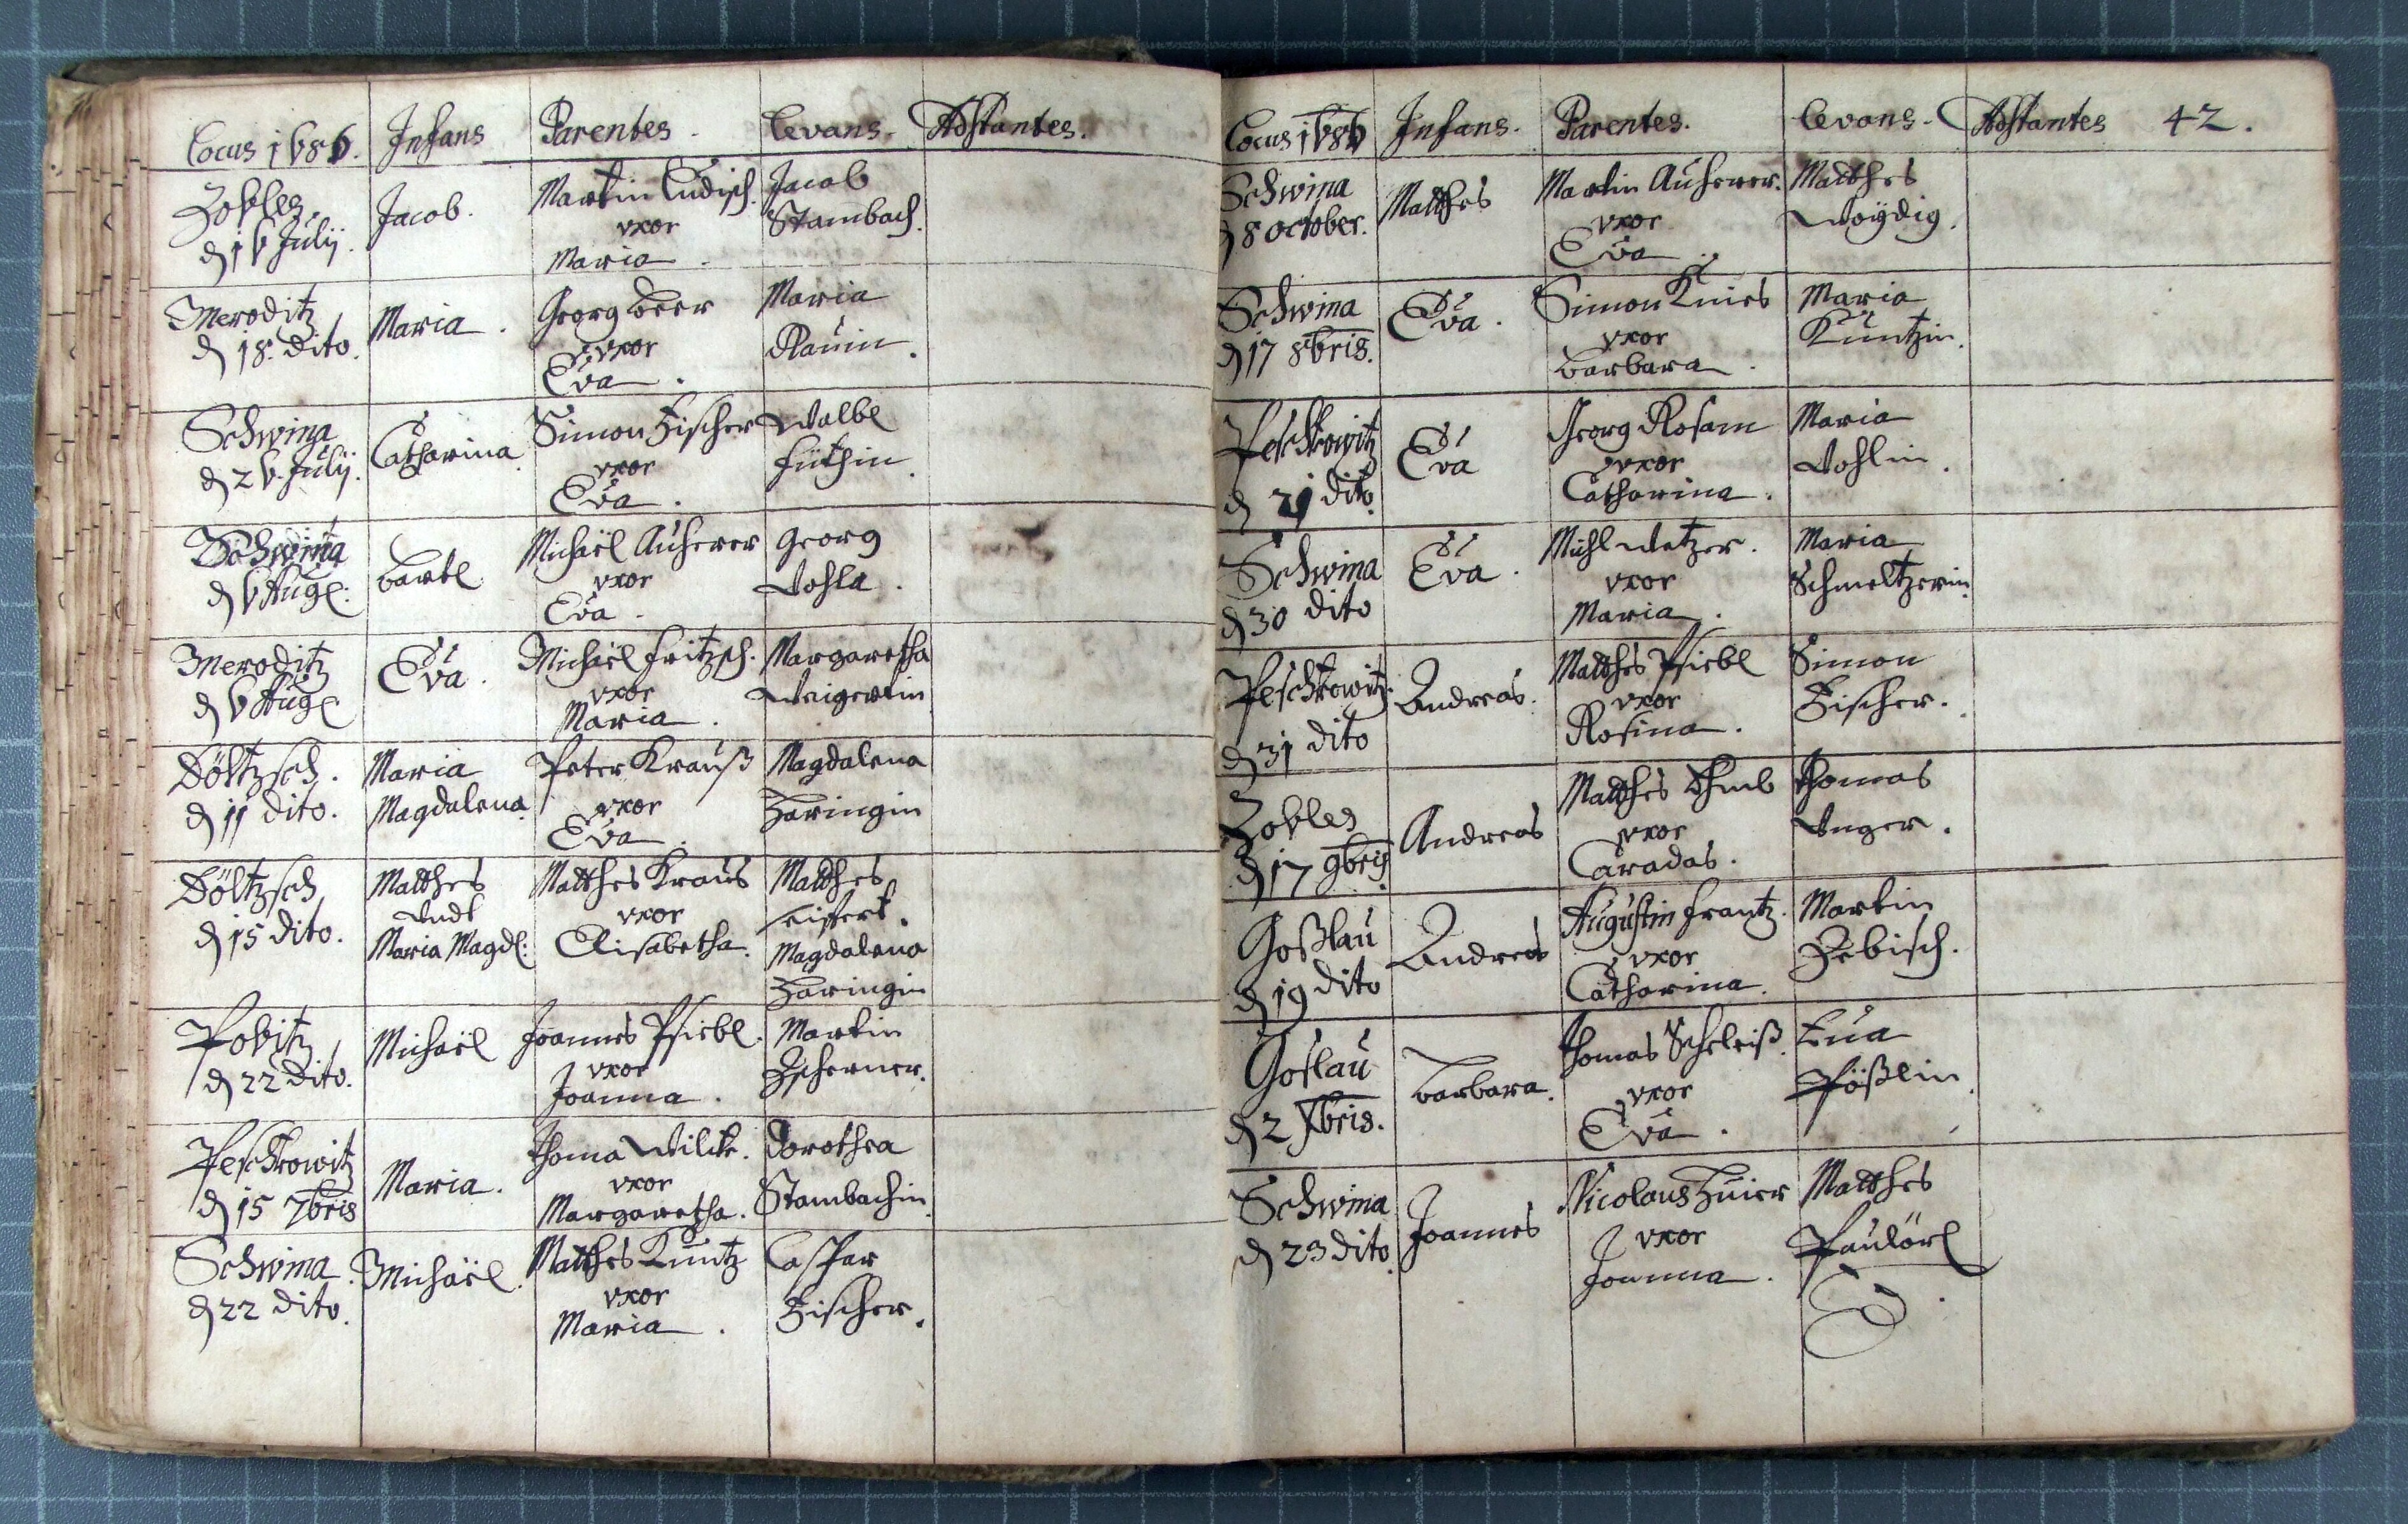 Locus 1686. Infans Parentes. Levans. Adstantes.
Zobles
d 16 Julij.
Jacob.
Martin Ludisch.
vxor
Maria.
Jacob
Stambach.
Meroditz
d 18. dito.
Maria.
Georg Beer
vxor
Eva.
Maria
Rauin.
Schwina
d 26. Julij.
Catharina
Simon Fischer
vxor
Eva.
Walbl
Füthin
Schwina
d 6 Augl:
Bartl
Michaël Auherer
vxor
Eva.
Georg
Vohla.
Meroditz
d 6 Augl
Eva.
Michaël Fritzsch.
vxor
Maria.
Margaretha
Weigertin
Döltzsch.
d 11 dito.
Maria
Magdalena.
Peter Krauß
vxor
Eva.
Magdalena
Haringin
Döltzsch
d 15 dito.
Matthes
Vndt
Maria Magdl:
Matthes Kraus
vxor
Elisabetha.
Matthes
Magdalena
Haringin
Pobitz
d 22 dito.
Michaël
Joannes Pfiebl.
vxor
Joanna.
Martin
Zscherner.
Peschkowitz
d 15 7bris
Maria.
Thoma Wilck.
vxor
Margaretha.
Dorothea
Stambachin.
Schwina.
d 22 dito.
Michaël.
Matthes Kuntz
vxor
Maria.
Caspar
Fischer.
Locus 1686 Infans. Parentes. Levans. Adstantes 42.
Schwina
d 8 october.
Matthes
Martin Auherer.
vxor
Eva.
Matthes
Woÿdig.
Schwina
d 17 8bris.
Eva.
Simon Knies
vxor
Barbara.
Maria
Kuntzin.
Peschkowitz
d 21 dito.
Eva
Georg Rosam
vxor
Catharina.
Maria
Vohlin.
Schwina
d 30 dito
Eva.
Michl Watzer.
vxor
Maria.
Maria
Schmeltzerin.
Peschkowitz.
d 31 dito
Andreas.
Matthes Pfiebl
vxor
Rosina.
Simon
Fischer.
Zobles
d 17 9bris.
Andreas
Matthes
vxor
Caradas.
Thomas
Vnger.
Goßlau
d 19 dito
Andreas
Augustin Frantz.
vxor
Catharina.
Martin
Zebisch.
Goslau
d 2 Xbris.
Barbara.
Thomas Schleiß.
vxor
Eva.
Eua
Pößlin.
Schwina
d 23 dito.
Joannes
Nicolaus Huier
vxor
Joanna.
Matthes
Paulörl